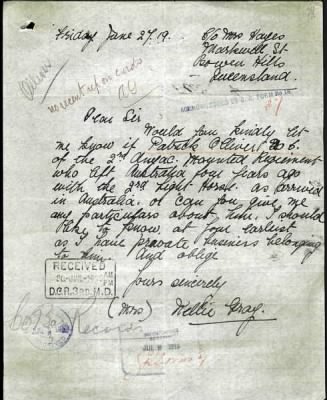 Friday June 27. 19.
C/o Mrs Hayes
Markwell St
Bowen Hills
Queensland.
Oliver
no record up on cards
Dear Sir
Would you kindly let
me know if Patrick Oliver No 6.
of the 2nd Anzac Mounted Regiment
who left Australia four years ago
with the 2nd Light Horse. as arrived
in Australia. or can you give me
any particulars about him. I should
like to know, at your earliest
as I have private business belonging
to him. And oblige
Yours sincerely
(Mrs) Nellie Gray.
RECEIVED
D.O.R. 3RD M.D.
Records